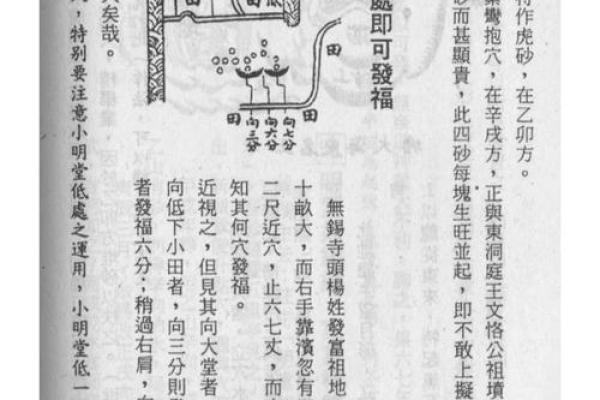 作虎砂，在乙卯方。
鸞抱穴，在辛戌方，正與東洞庭王文恪公祖墳
砂而甚顯貴，此四砂每塊生旺並起，即不敢上擬
處即可發福
田
田
田
田
向七分
向六分
向三分
無錫寺頭楊姓發富祖地
十畝大，而右手靠濱忽有
二尺近穴，止六七丈，而
知其何穴發福。
近視之，但見其向大堂者
向低下小田者，向三分則
者發福六分；稍過右肩，
矣哉。
，特別要注意小明堂低處之運用，小明堂低一